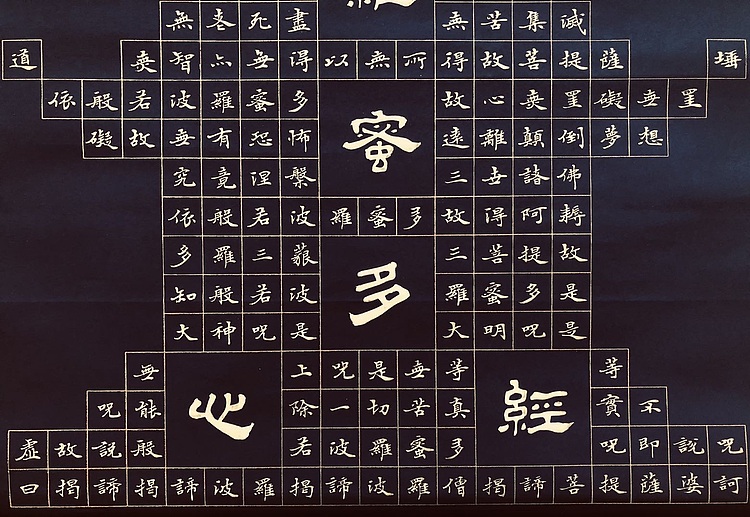 無老死盡 無苦集滅
道 無智亦無得以無所得故菩提薩 埵
依般若波羅蜜多 故心無罣礙無罣
蜜
礙故無有恐怖 遠離顛倒夢想
究竟涅槃 三世諸佛
依般若波羅蜜多故得阿耨
多羅三藐 三菩提故
多
知般若波 羅蜜多是
大神咒是 大明咒是
無 上咒是無等 等
心 經
咒能 除一切苦真 實不
虛故說般 若波羅蜜多 咒即說咒
曰揭諦揭諦波羅揭諦波羅僧揭諦菩提薩婆訶